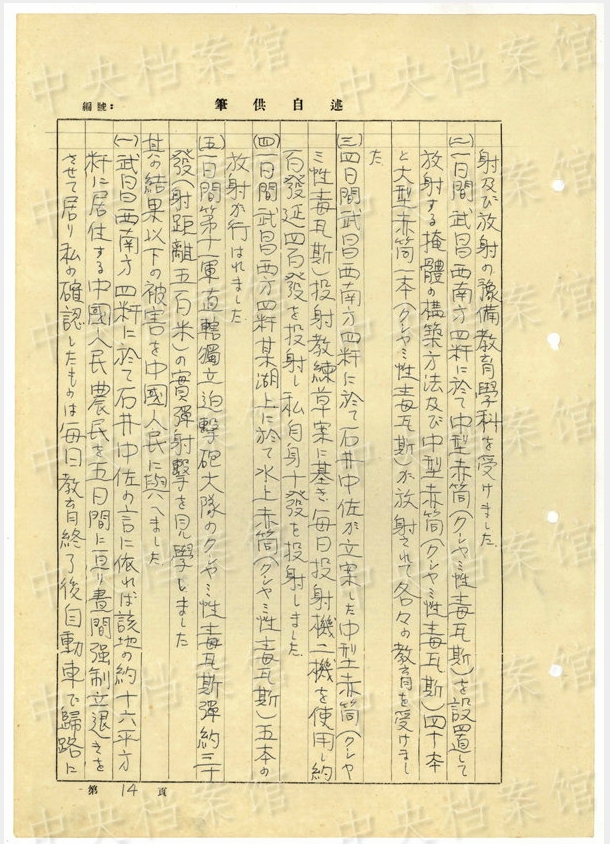 編號：
述自供筆
射及び放射の豫備教育學科を受けました
(二)一日間武昌西南方四粁に於て中型赤筒(クシャミ性毒瓦斯)を設置して
放射する掩體の構築方法及び中型赤筒(クシャミ性毒瓦斯)四十本
と大型赤筒一本(クシャミ性毒瓦斯)が放射されて各々の教育を受けまし
た
(三)四日間武昌西南方四粁に於て石井中佐が立案した中型赤筒(クシャ
ミ性毒瓦斯)投射教練草案に基き每日投射機二機を使用し約
百發延四百發を投射し私自身十發を投射しました
(四)一日間武昌西方四粁某湖上に於て水上赤筒(クシャミ性毒瓦斯)五本の
放射が行はれました
(五)一日間第十一軍直轄獨立迫擊砲大隊のクシャミ性毒瓦斯彈約三十
發(射距離五百米)の實彈射擊を見學しました
其の結果以下の被害を中國人民に與へました
(一)武昌西南方四粁に於て石井中佐の言に依れば該地の約十六平方
粁に居住する中國人民農民を五日間に亘り晝間强制立退きを
させて居り私の確認したものは每日教育終了後自動車で歸路に
第14頁
中央档案馆